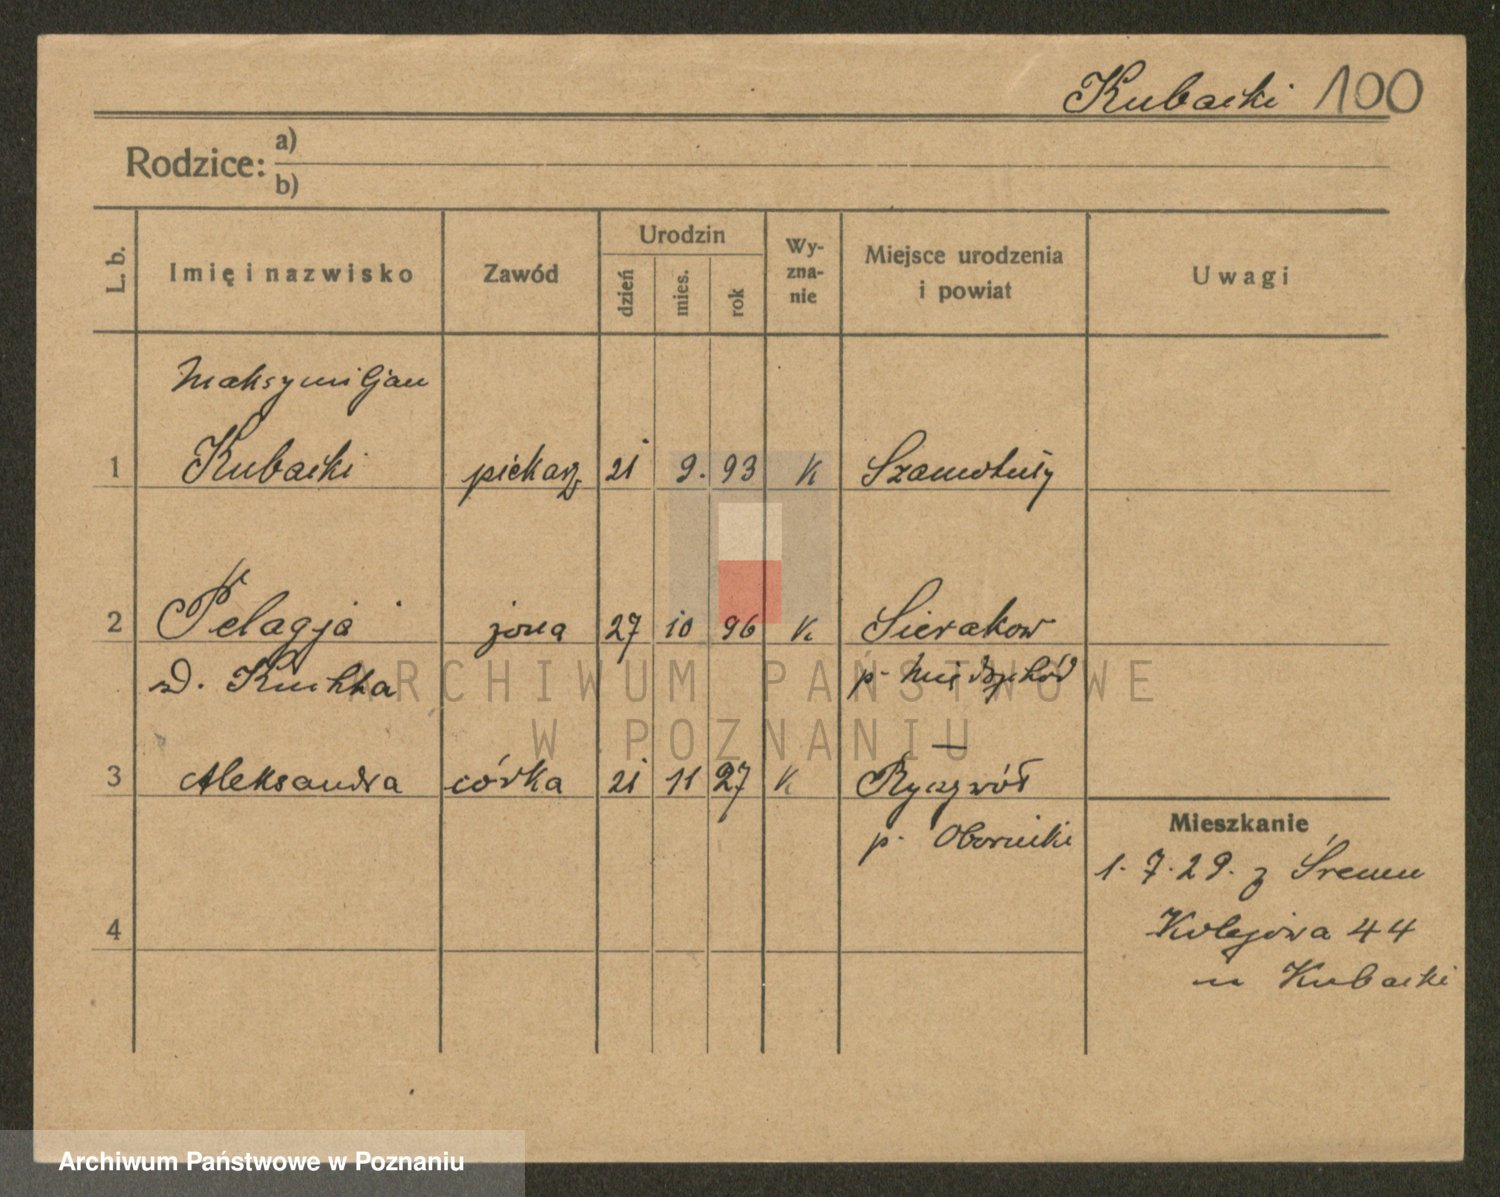 Kubacki 100
Rodzice: a)
b)
L. b. Imię i nazwisko Zawód Urodzin dzień mies. rok Wyznanie Miejsce urodzenia i powiat Uwagi
Maksymiljan
1 Kubacki piekarz 21 9. 93 K Szamotuły
2 Pelagja żona 27 10 96 K Sieraków
d. Kuchta p. Międzychód
3 Aleksandra córka 21 11 27 K Ryczywół
p. Oborniki
Mieszkanie
1. 7. 29. z Śremu
4 Kolejowa 44
u Kubacki
ARCHIWUM PAŃSTWOWE
W POZNANIU
Archiwum Państwowe w Poznaniu